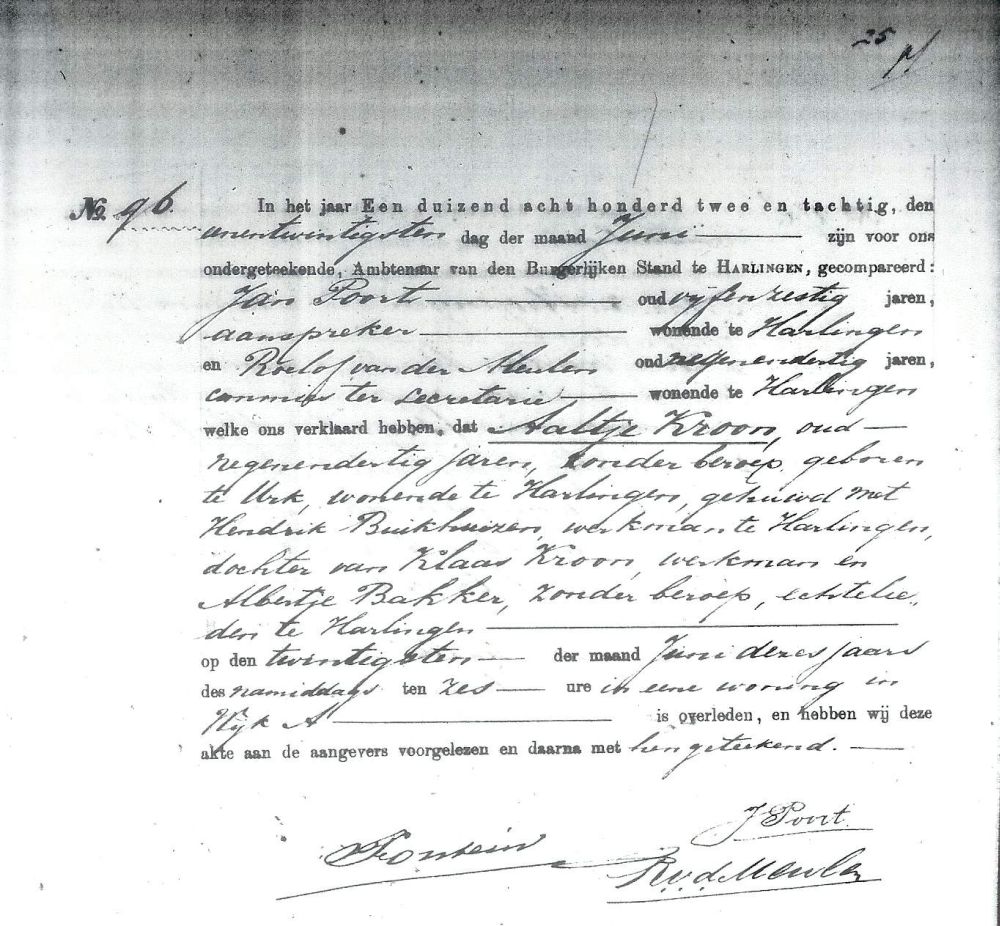 25
No. 96.
In het jaar Een duizend acht honderd twee en tachtig, den
eenentwintigsten dag der maand Juni zijn voor ons
ondergeteekende, Ambtenaar van den Burgerlijken Stand te HARLINGEN, gecompareerd:
Jan Poort oud vijfenzestig jaren,
aanspreker wonende te Harlingen
en Roelof van der Meulen oud negenendertig jaren,
commies ter secretarie wonende te Harlingen
welke ons verklaard hebben, dat Aaltje Kroon, oud
negenendertig jaren, zonder beroep, geboren
te Urk, wonende te Harlingen, gehuwd met
Hendrik Buikhuizen, werkman te Harlingen,
dochter van Klaas Kroon, werkman en
Albertje Bakker, zonder beroep, echtelie„
den te Harlingen
op den twintigsten der maand Juni dezes jaars
des namiddags ten zes ure in eene woning in
Wijk A is overleden, en hebben wij deze
akte aan de aangevers voorgelezen en daarna met hen geteekend.
J Poort.
Fontein
R.v.d. Meulen